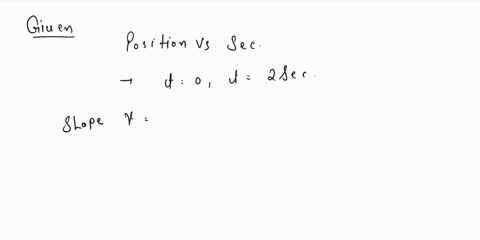 Given
Position vs Sec.
→ t = 0, t = 2 Sec.
Slope v =